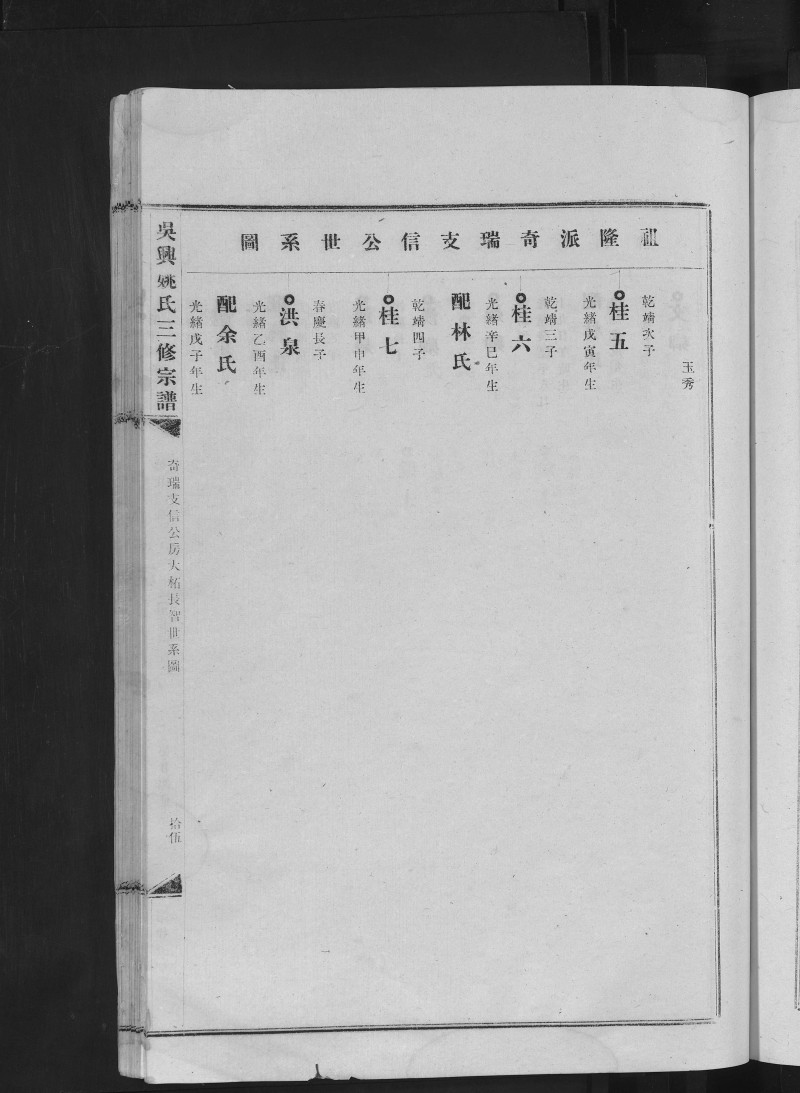 祖隆派奇瑞支信公世系圖
玉秀
乾靖次子
桂五
光緒戊寅年生
乾靖三子
桂六
光緒辛巳年生
配林氏
乾靖四子
桂七
光緒甲申年生
春慶長子
洪泉
光緒乙酉年生
配余氏
光緒戊子年生
吳興姚氏三修宗譜
奇瑞支信公房大柘長智世系圖
拾伍